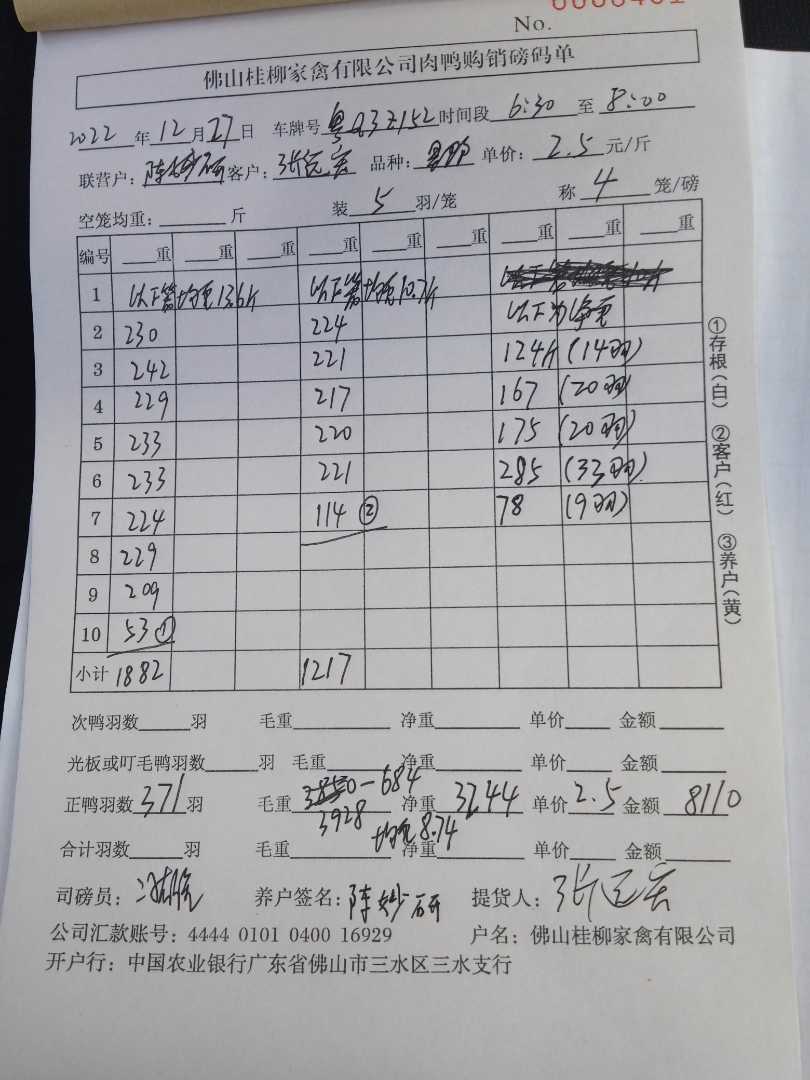 No.
佛山桂柳家禽有限公司肉鸭购销磅码单
2022 年 12 月 27 日 车牌号 粤 时间段 6:30 至 8:00
联营户: 陈妙研 客户: 张远宏 品种: 单价: 2.5 元/斤
空笼均重: 斤 装 5 羽/笼 称 4 笼/磅
编号 重 重 重 重 重 重 重 重 重
1 以下笼均重13.6斤 以下笼均重10.7斤
2 230 224 以下为净重
3 242 221 124斤 (14羽)
4 229 217 167 (20羽)
5 233 220 175 (20羽)
6 233 221 285 (33羽)
7 224 114 ② 78 (9羽)
8 229
9 209
10 53 ①
小计 1882 1217
次鸭羽数 羽 毛重 净重 单价 金额
光板或叮毛鸭羽数 羽 毛重 净重 单价 金额
正鸭羽数 371 羽 毛重 3928 -684 净重 3244 单价 2.5 金额 8110
均重 8.74
合计羽数 羽 毛重 净重 单价 金额
司磅员: 养户签名: 陈妙研 提货人: 张远宏
公司汇款账号: 4444 0101 0400 16929 户名: 佛山桂柳家禽有限公司
开户行: 中国农业银行广东省佛山市三水区三水支行
①存根(白) ②客户(红) ③养户(黄)